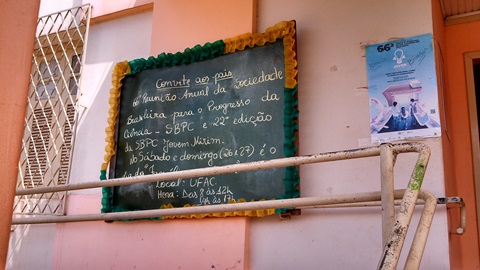 Convite aos pais
66ª Reunião Anual da Sociedade
Brasileira para o Progresso da
Ciência - SBPC e 22ª edição
da SBPC Jovem Mirim.
No Sábado e domingo (26 e 27) é o
Local: UFAC
Hora: Das 8 às 12h
14h às 17h
66ª